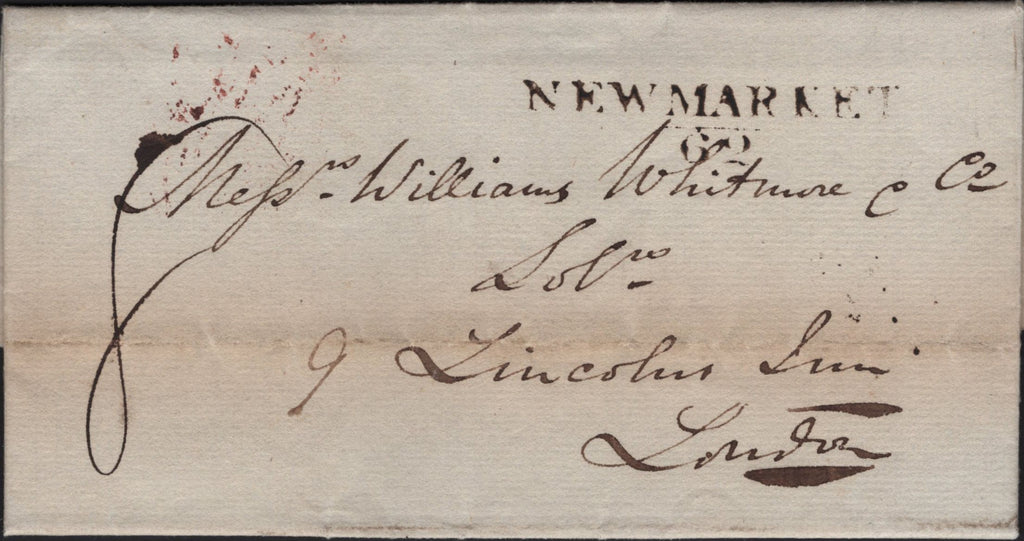 NEWMARKET
60
8
Messrs. Williams Whitmore & Co
Solrs
9 Lincolns Inn
London